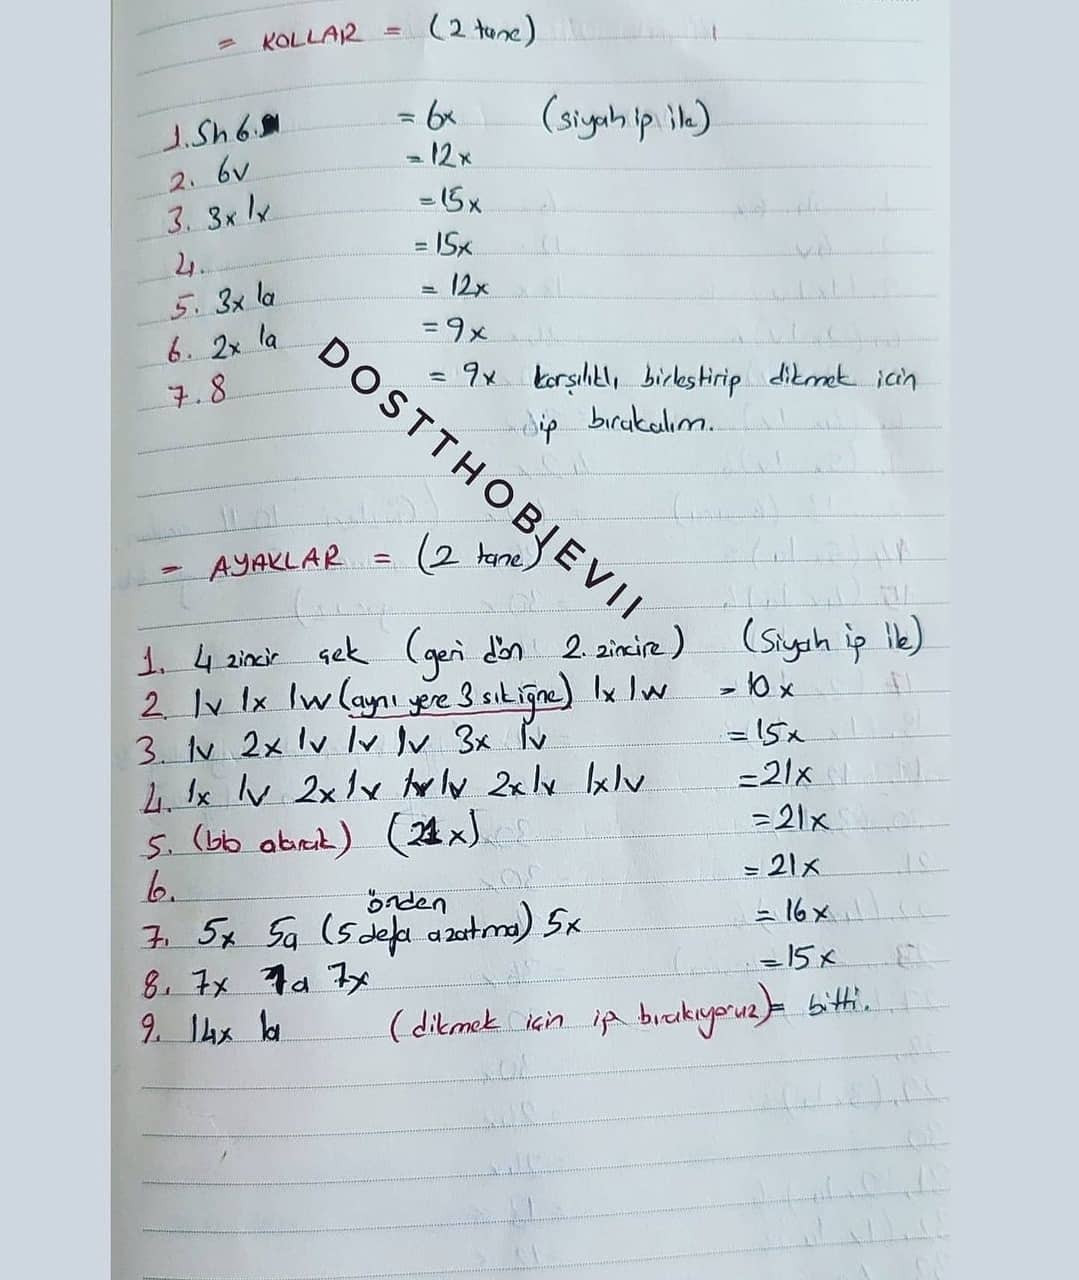 = KOLLAR = (2 tane)
1. Sh 6. = 6x (siyah ip ile)
2. 6v = 12x
3. 3x 1v = 15x
4. = 15x
5. 3x 1a = 12x
6. 2x 1a = 9x
7. 8 = 9x karşılıklı birleştirip dikmek için
ip bırakalım.
DOSTTHOBİEVİİ
- AYAKLAR = (2 tane)
1. 4 zincir çek (geri dön 2. zincire) (Siyah ip ile)
2. 1v 1x 1w (aynı yere 3 sık iğne) 1x 1w = 10x
3. 1v 2x 1v 1v 1v 3x 1v = 15x
4. 1x 1v 2x 1v 1v 2x 1v 1x 1v = 21x
5. (bb alarak) (21x) = 21x
6. = 21x
önden
7. 5x 5a (5 defa azatma) 5x = 16x
8. 7x 1a 7x = 15x
9. 14x 1a (dikmek için ip bırakıyoruz) = bitti.